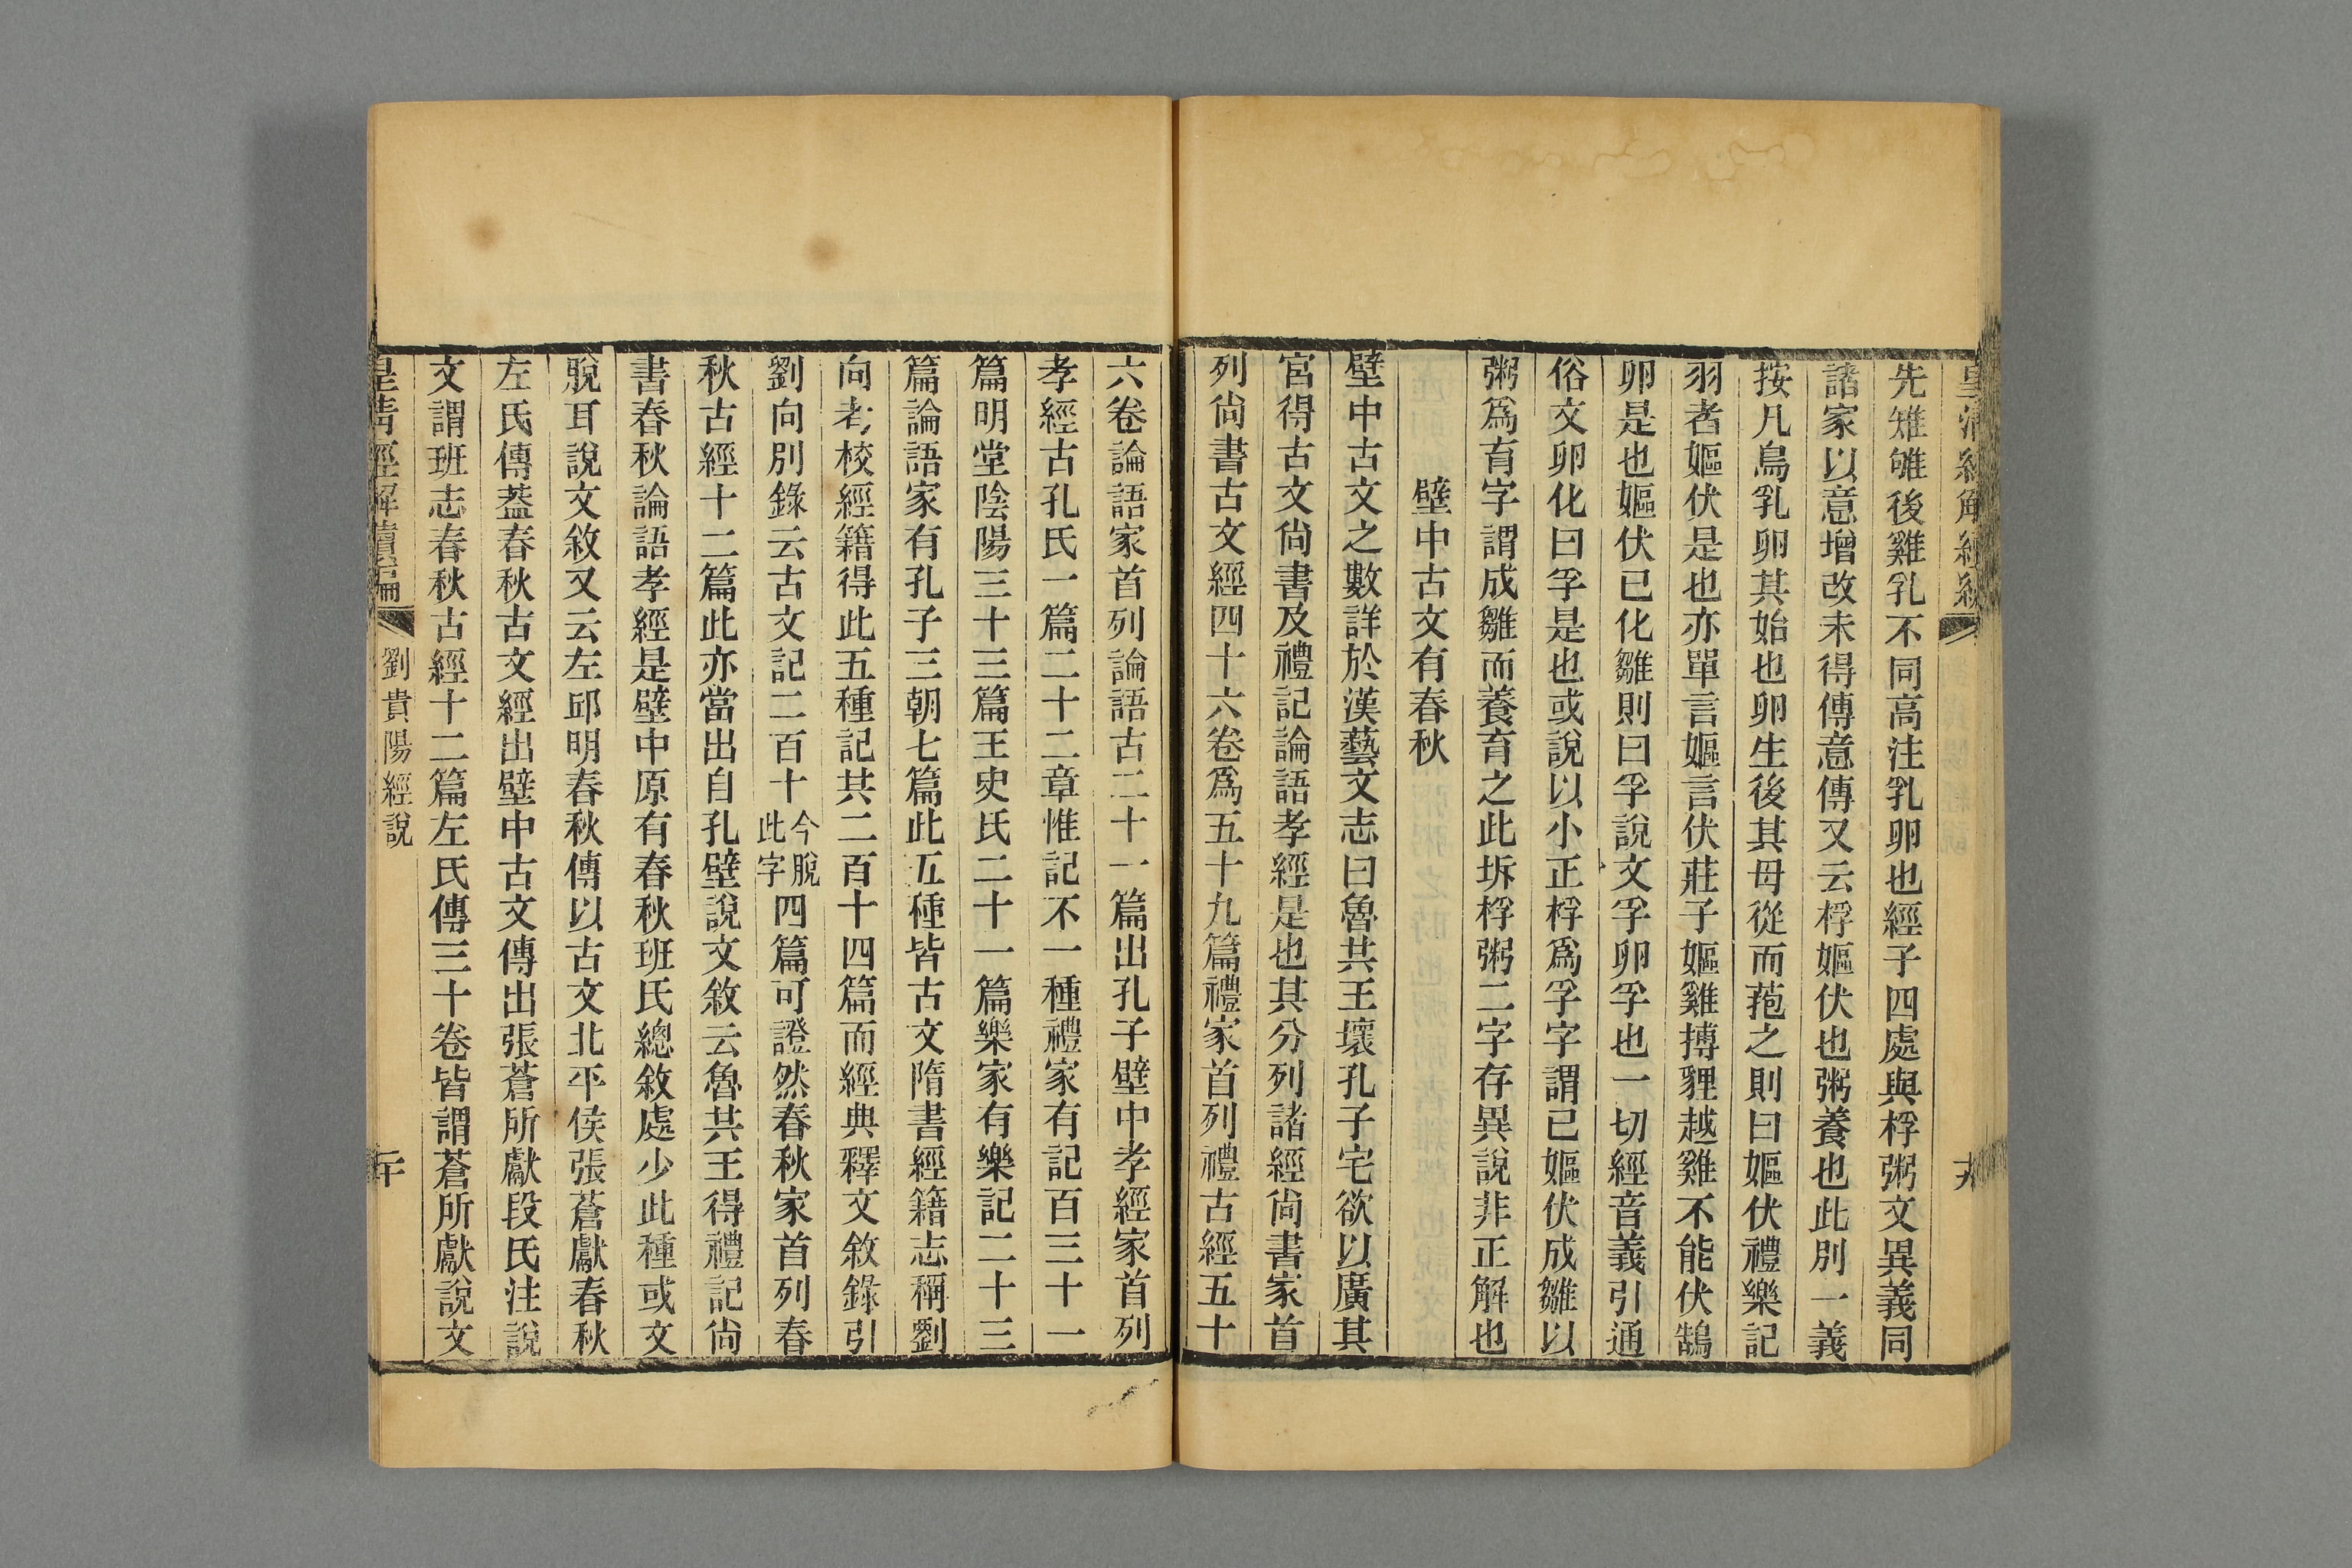 先雉雊後雞乳不同高注乳卵也經子四處與桴粥文異義同
諸家以意增改未得傳意傳又云桴嫗伏也粥養也此別一義
按凡鳥乳卵其始也卵生後其母從而菢之則曰嫗伏禮樂記
羽者嫗伏是也亦單言嫗言伏莊子嫗雞搏貍越雞不能伏鵠
卵是也嫗伏已化雛則曰孚說文孚卵孚也一切經音義引通
俗文卵化曰孚是也或說以小正桴爲孚字謂已嫗伏成雛以
粥爲育字謂成雛而養育之此坼桴粥二字存異說非正解也
壁中古文有春秋
壁中古文之數詳於漢藝文志曰魯共王壞孔子宅欲以廣其
宮得古文尙書及禮記論語孝經是也其分列諸經尙書家首
列尙書古文經四十六卷爲五十九篇禮家首列禮古經五十
六卷論語家首列論語古二十一篇出孔子壁中孝經家首列
孝經古孔氏一篇二十二章惟記不一種禮家有記百三十一
篇明堂陰陽三十三篇王史氏二十一篇樂家有樂記二十三
篇論語家有孔子三朝七篇此五種皆古文隋書經籍志稱劉
向考校經籍得此五種記共二百十四篇而經典釋文敘錄引
劉向別錄云古文記二百十今脫此字四篇可證然春秋家首列春
秋古經十二篇此亦當出自孔壁說文敘云魯共王得禮記尙
書春秋論語孝經是壁中原有春秋班氏總敘處少此種或文
脫耳說文敘又云左邱明春秋傳以古文北平侯張蒼獻春秋
左氏傳葢春秋古文經出壁中古文傳出張蒼所獻段氏注說
文謂班志春秋古經十二篇左氏傳三十卷皆謂蒼所獻說文
皇清經解續編
劉貴陽經說